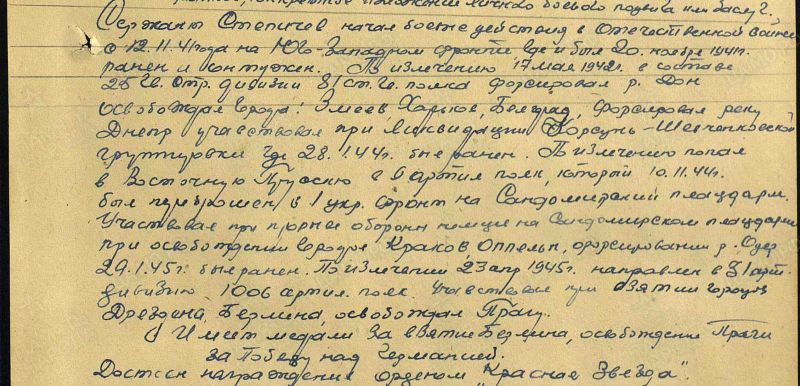 конкретное изложение личного боевого подвига или заслуг.
Сержант Степичев начал боевые действия в Отечественной войне
с 12.11.41 года на Юго-Западном фронте где и был 20. ноября 1941 г.
ранен и контужен. По излечению 17 мая 1942 г. в составе
25 Гв. Стр. дивизии 81 ст. Гв. полка форсировал р. Дон
освобождал города: Змеев, Харьков, Белград, форсировал реку
Днепр участвовал при ликвидации Корсунь-Шевченковской
группировки где 28.1.44 г. был ранен. По излечению попал
в Восточную Пруссию в 6 артил полк, который 10.11.44 г.
был переброшен в 1 укр. фронт на Сандомирский плацдарм.
Участвовал при прорыве обороны немцев на Сандомирском плацдарме
при освобождении городов Краков, Оппельн, форсировании р. Одер
29.1.45 г. был ранен. По излечении 23 апр 1945 г. направлен в 31 арт.
дивизию 1006 артил. полк. Участвовал при взятии городов
Дрездена, Берлина, освобождал Прагу.
Имеет медали за взятие Берлина, освобождение Праги
за Победу над Германией.
Достоин награждения орденом „Красная Звезда".